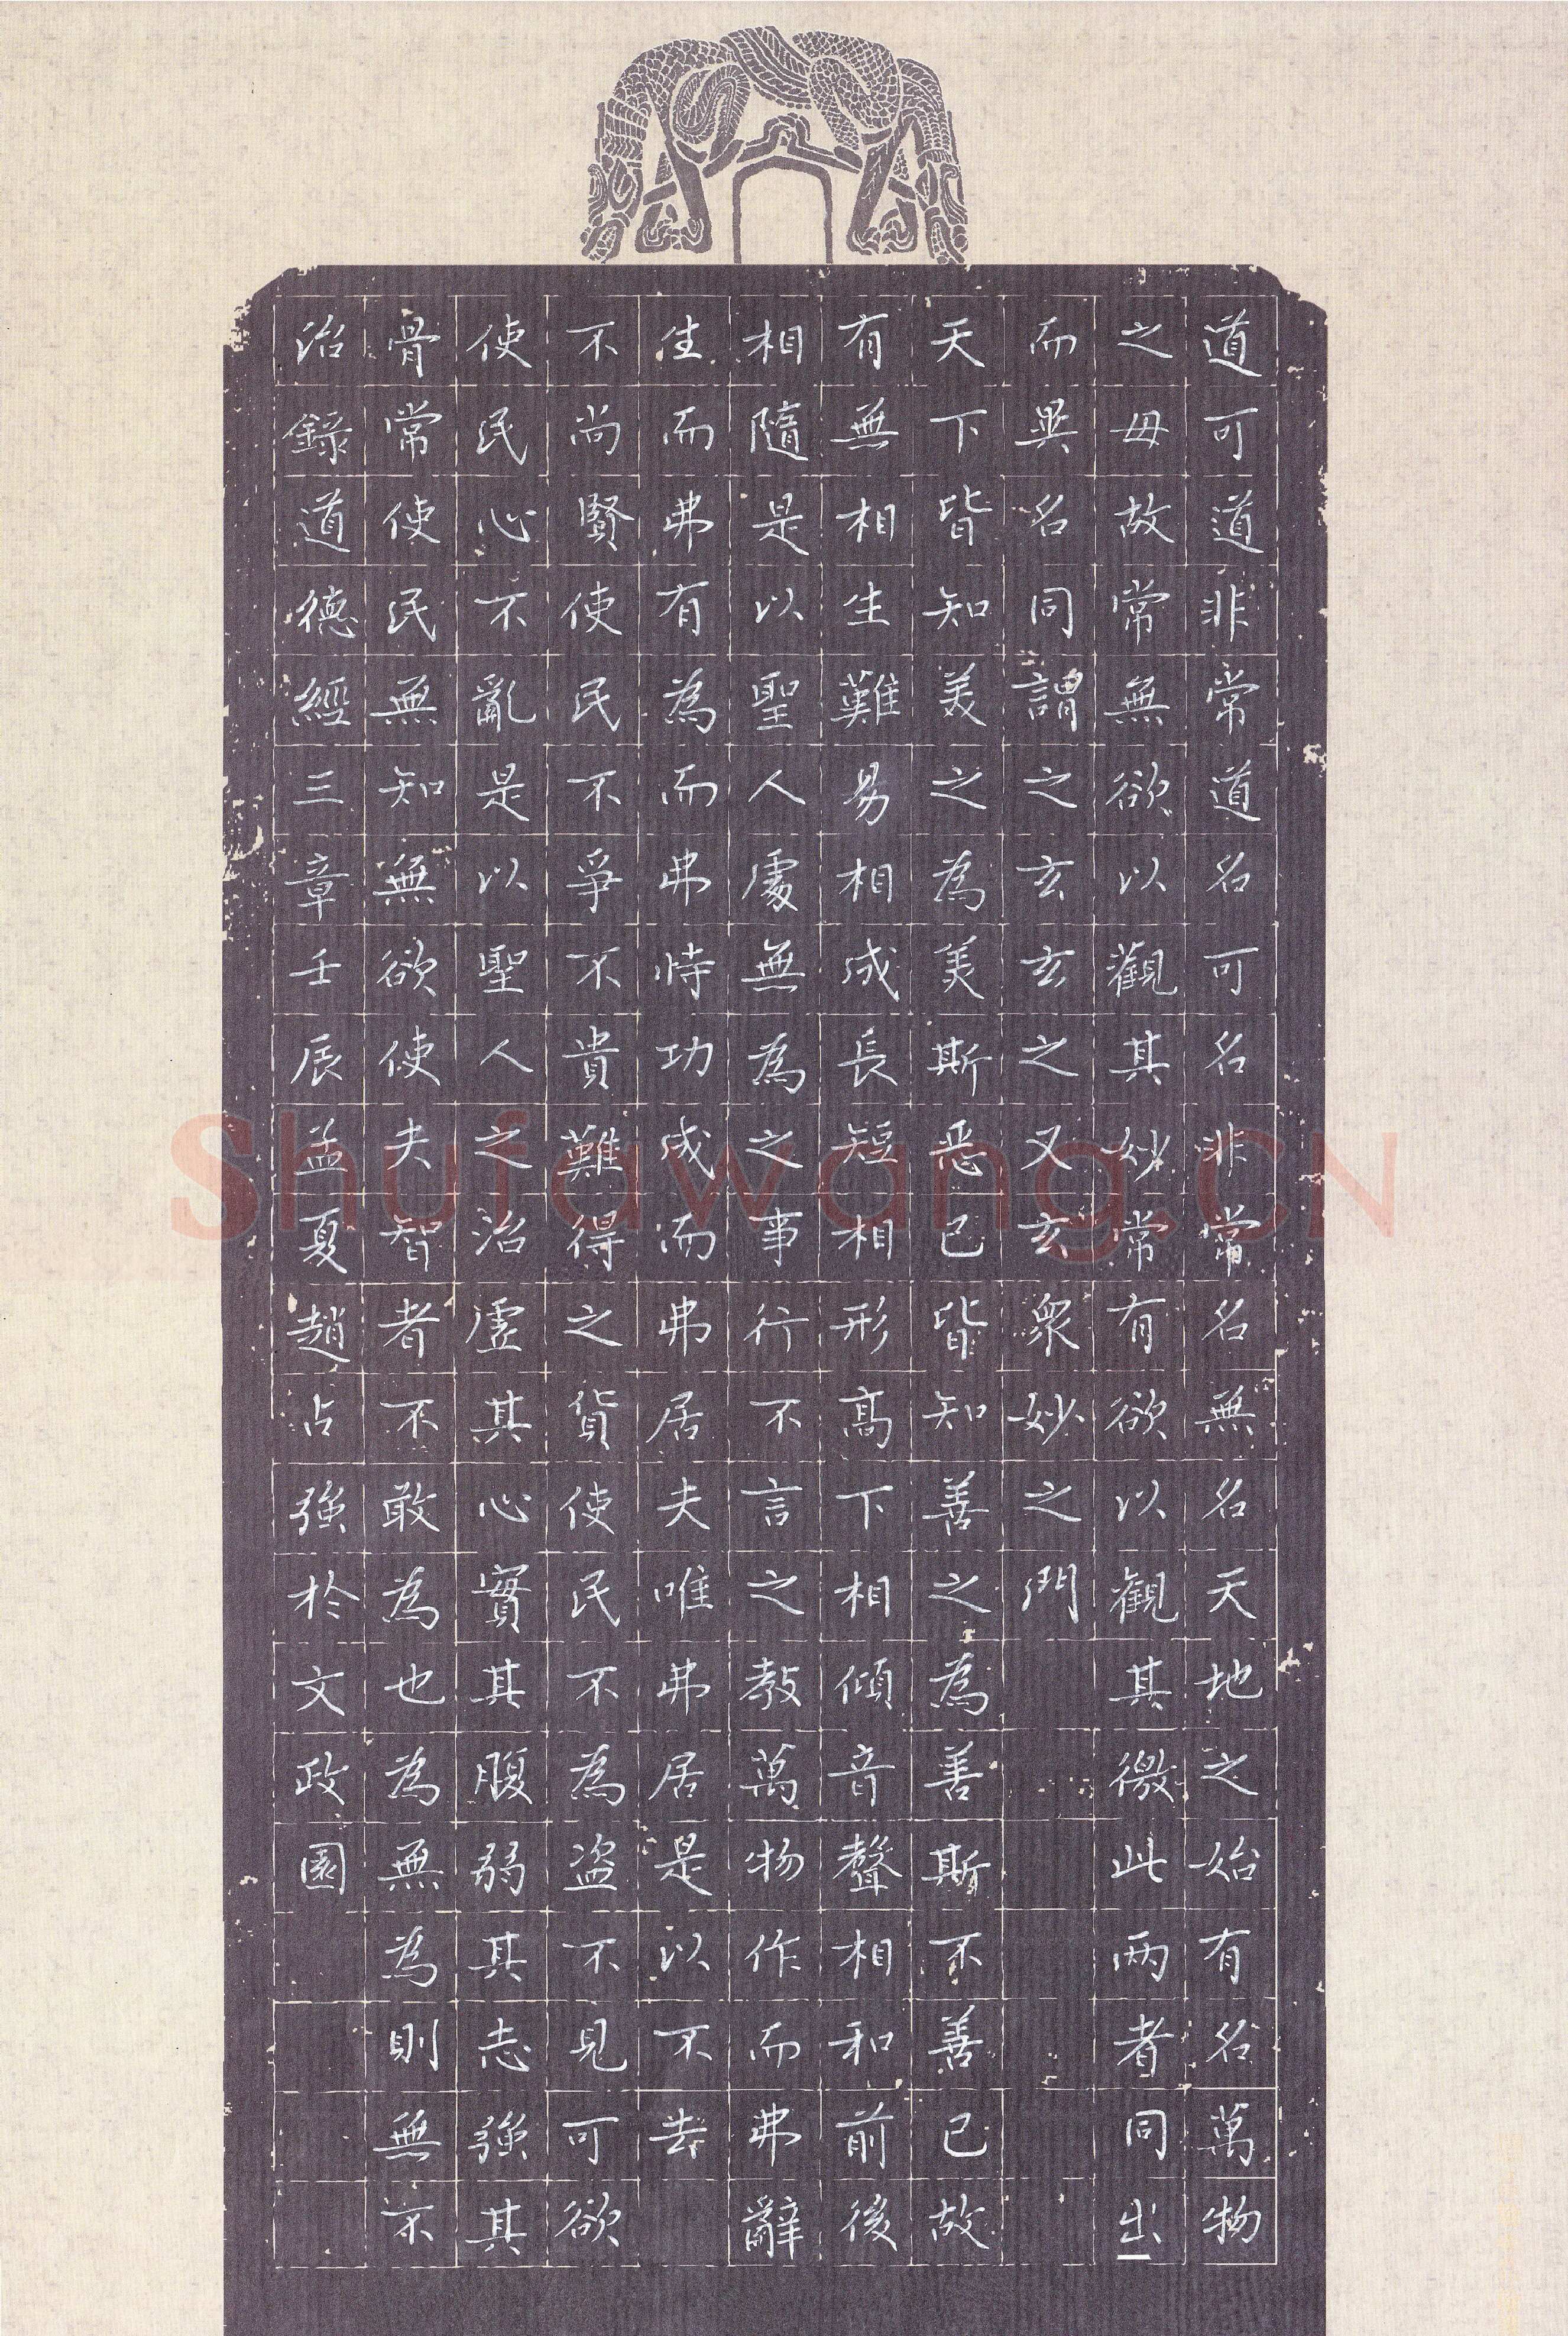 道可道非常道名可名非常名無名天地之始有名萬物
之母故常無欲以觀其妙常有欲以觀其徼此两者同出
而異名同謂之玄玄之又玄衆妙之門
天下皆知美之為美斯恶已皆知善之為善斯不善已故
有無相生難易相成長短相形高下相傾音聲相和前後
相隨是以聖人處無為之事行不言之教萬物作而弗辭
生而弗有為而弗恃功成而弗居夫唯弗居是以不去
不尚賢使民不爭不貴難得之貨使民不為盜不見可欲
使民心不亂是以聖人之治虛其心實其腹弱其志強其
骨常使民無知無欲使夫智者不敢為也為無為則無不
治錄道德經三章壬辰孟夏趙占強於文政園
Shufawang.CN